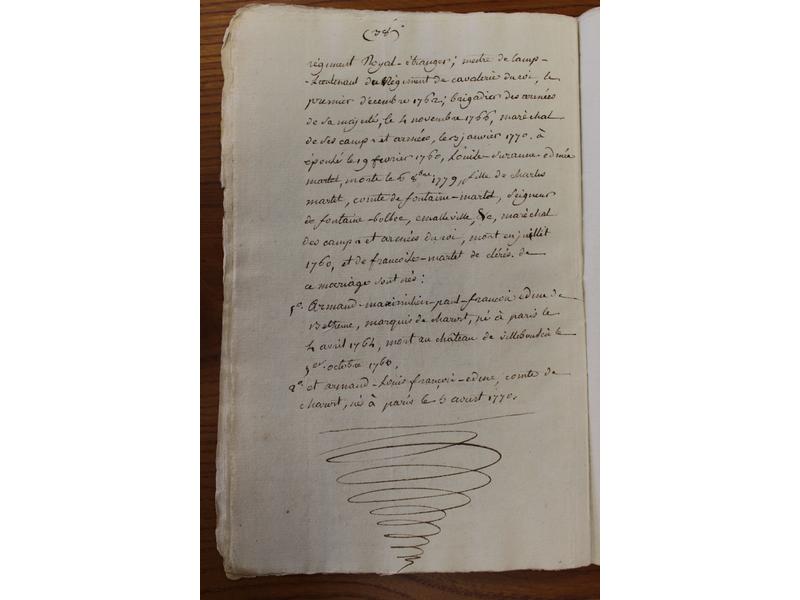 (38)
régiment Royal-étranger; mestre de camp-
-Lieutenant du Régiment de cavalerie du roi, le
premier décembre 1762; brigadier des armées
de sa majesté, le 4 novembre 1766, maréchal
de ses camps et armées, le 3 janvier 1770. à
épousé le 19 février 1760, Louise-suzanne-edmée
martel, morte le 6 8bre 1779, fille de charles
martel, comte de fontaine-martel, Seigneur
de fontaine-bolbec, emalleville, &c, maréchal
des camps et armées du roi, mort en juillet
1760, et de françoise-martel de clères. de
ce mariage sont nés:
1º. Armand-maximilien-paul-françois edme de
Béthune, marquis de charost, né à paris le
4 avril 1764, mort au château de villebousin le
1er. octobre 1768.
2º. et armand-Louis françois-edme, comte de
charost, né à paris le 5 aoust 1770.